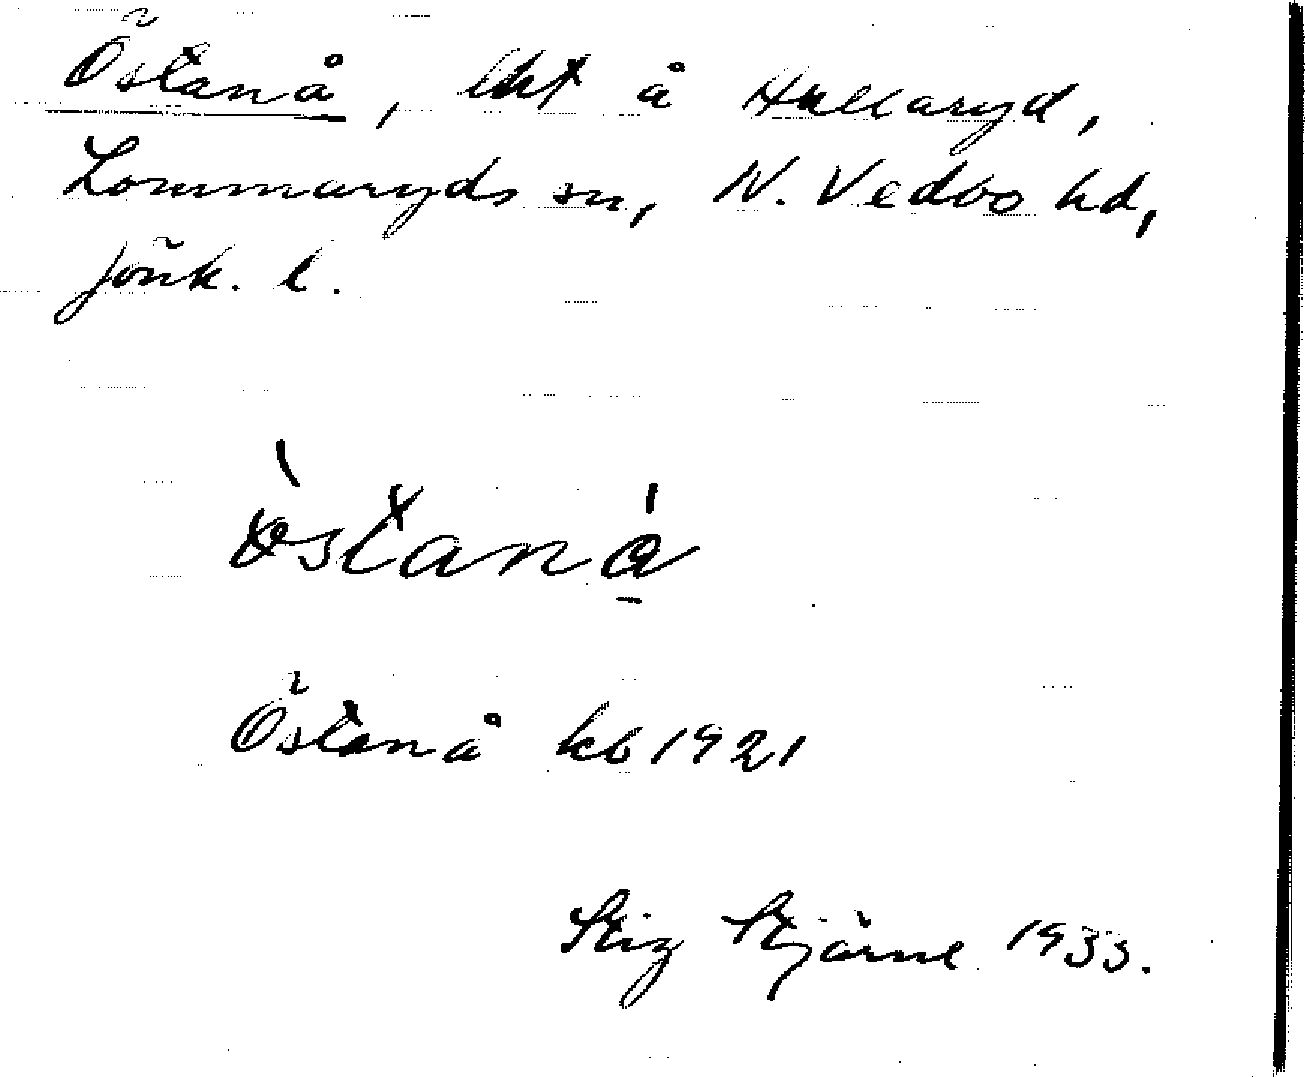 Östanå, lht å Hullaryd,
Lommaryds sn, N. Vedbo hd,
Jönk. l.
östanå
Östanå kb 1921
Stig Stjärne 1933.